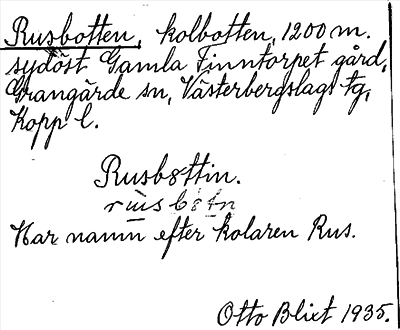 Rusbotten, kolbotten, 1200 m.
sydöst Gamla Finntorpet gård,
Grangärde sn, Västerbergslags tg,
Kopp l.
Rusbottin.
Har namn efter kolaren Rus.
Otto Blixt 1935.